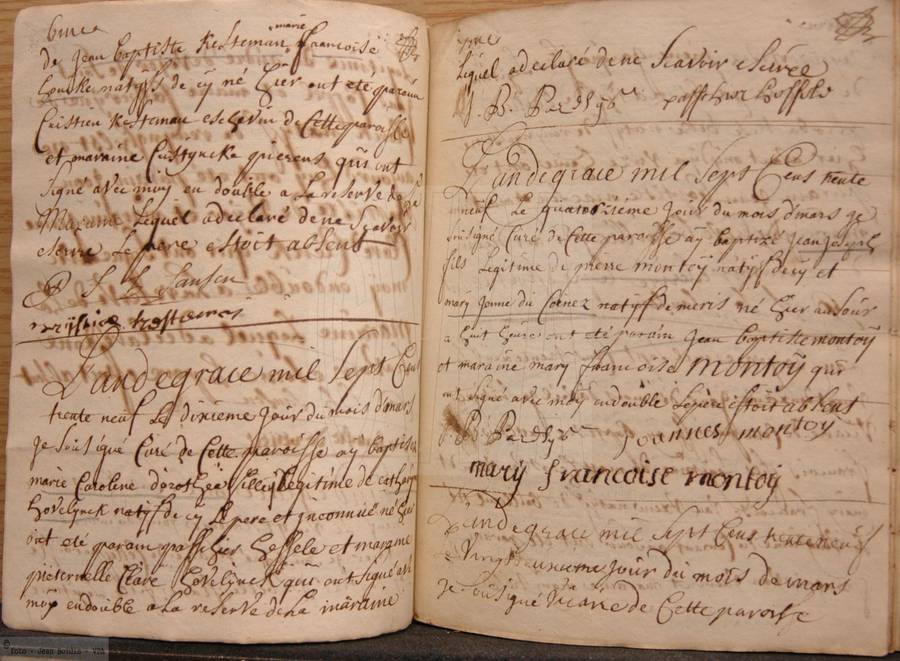 de jean baptiste Kesteman, marie françoise
natyfs de cÿ né hier ont eté parain
Cristien Kesteman eschevin de Cette paroisse
et maraine qui ont
signé avec moy en double a la reserve de
Maraine lequel a declaré de ne scavoir
escrire le pere estoit absent
L'an de grace mil sept Cens
trente neuf le dixieme jour du mois de mars
je sousigné Curé de Cette paroisse ay baptisé
marie Caroline dorothea fille illegitime de
hovelÿnck natyf de cÿ le pere et inconnué né hier
ont eté parain passchier hessele et maraine
pieternelle Clare hovelÿnck qui ont signé avec
moy en double a la reserve de la maraine
lequel a declaré de ne scavoir escrire
passchier hessele
L'an de grace mil sept Cens trente
neuf le quatorzieme jour du mois de mars je
sousigné Curé de Cette paroisse aÿ baptizé jean joseph
fils legitime de pierre montoÿ natyf de cÿ et
mary jenne du natyff de meris né hier au soir
a huit heure ont eté parain jean baptiste montoÿ
et maraine mary françoise montoÿ qui
ont signé avec moy en double le pere estoit absent
joannes montoy
mary francoise montoy
L'an de grace mil sept Cens trente neuf
le vingt eunieme jour du mois de mars
je sousigné vicaire de Cette paroisse
© foto - Jean Bohlie - VPA